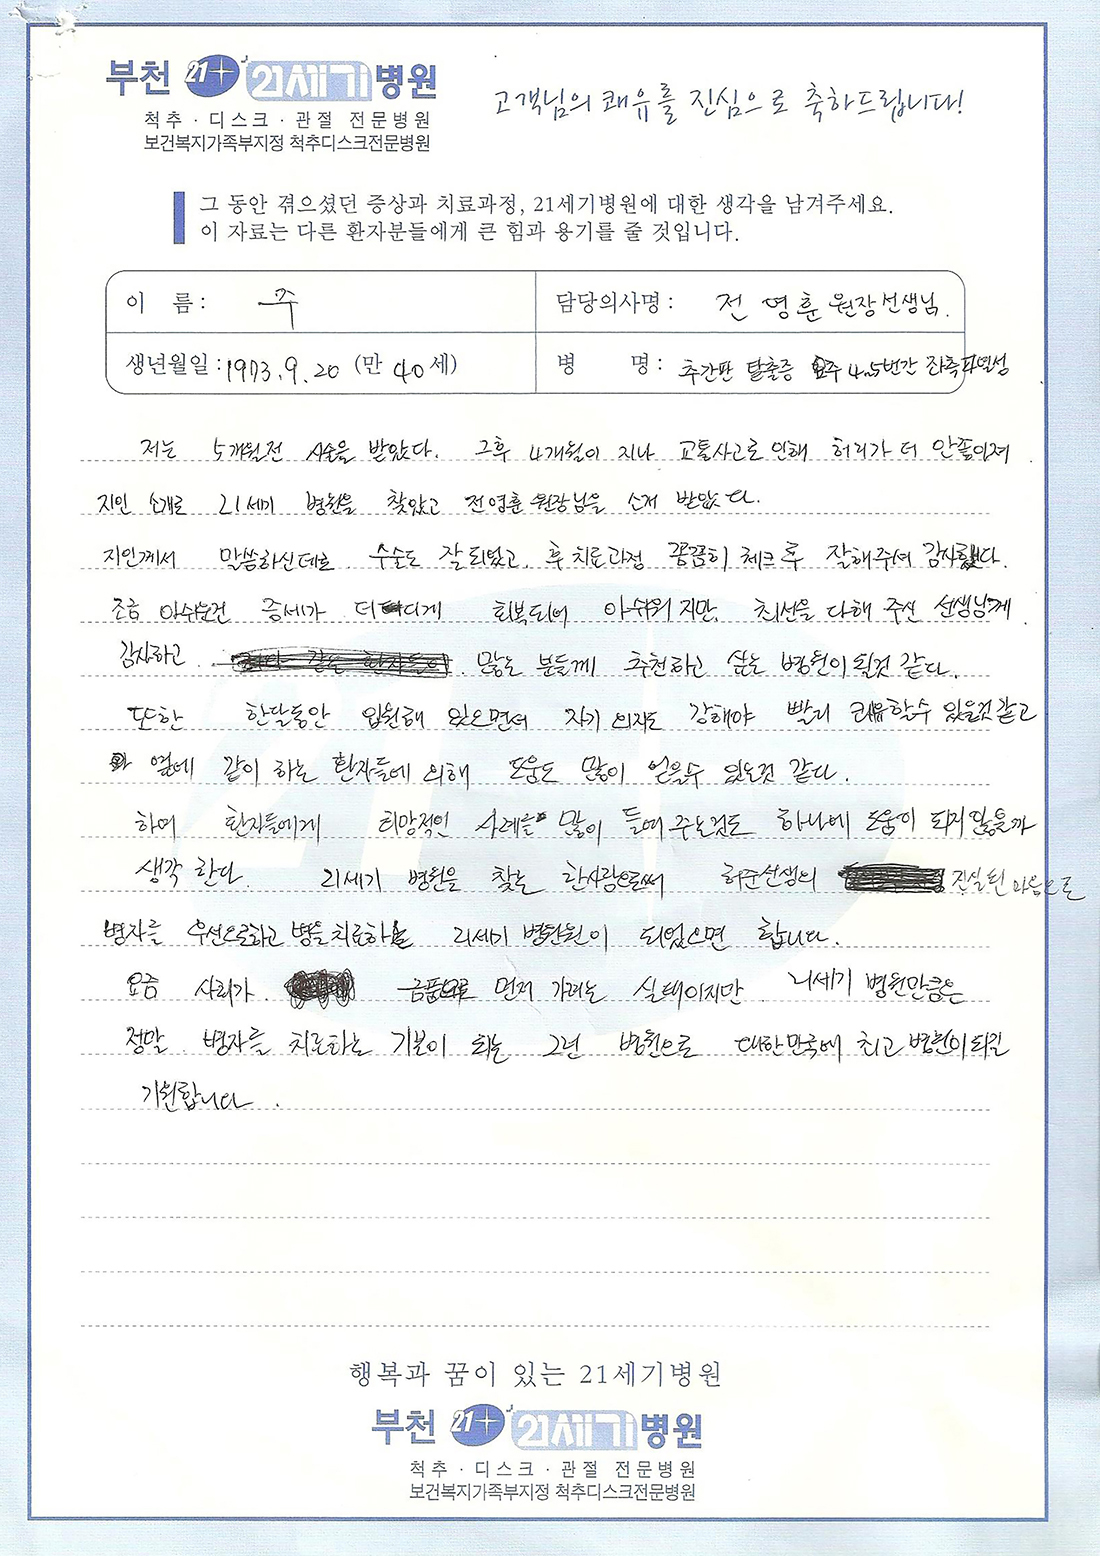 부천 21+ 21세기병원
척추 · 디스크 · 관절 전문병원
보건복지가족부지정 척추디스크전문병원
고객님의 쾌유를 진심으로 축하드립니다!
그 동안 겪으셨던 증상과 치료과정, 21세기병원에 대한 생각을 남겨주세요.
이 자료는 다른 환자분들에게 큰 힘과 용기를 줄 것입니다.
이 름 : 주
담당의사명 : 전영훈 원장선생님.
생년월일 : 1973.9.20 (만 40 세)
병 명 : 추간판 탈출증 요추 4.5번간 좌측파열성
저는 5개월전 시술을 받았다. 그후 4개월이 지나 교통사고로 인해 허리가 더 안좋아져
지인 소개로 21세기 병원을 찾았고 전영훈 원장님을 소개 받았다.
지인께서 말씀하신데로 수술도 잘되었고, 후 치료과정 꼼꼼히 체크 후 잘해주셔 감사했다.
조금 아쉬운건 증세가 더디게 회복되어 아쉬워지만, 최선을 다해 주신 선생님께
감사하고 많은 분들께 추천하고 싶은 병원이 될것 같다.
또한 한달동안 입원해 있으면서 자기 의지도 강해야 빨리 쾌유할수 있을것 같고
옆에 같이 하는 환자들에 의해 도움도 많이 얻을수 있는것 같다.
하여 환자들에게 희망적인 사례을 많이 들여주는것도 하나에 도움이 되지않을까
생각 한다. 21세기 병원을 찾는 한사람으로써 허준선생의 진실된 마음으로
병자를 우선으로하고 병을 치료하는 21세기 병원이 되었으면 합니다.
요즘 사회가 금품으로 먼저 가려는 실태이지만 21세기 병원만큼은
정말 병자를 치료하는 기본이 되는 그런 병원으로 대한민국에 최고 병원이 되길
기원합니다.
행복과 꿈이 있는 21세기병원
부천 21+ 21세기병원
척추 · 디스크 · 관절 전문병원
보건복지가족부지정 척추디스크전문병원